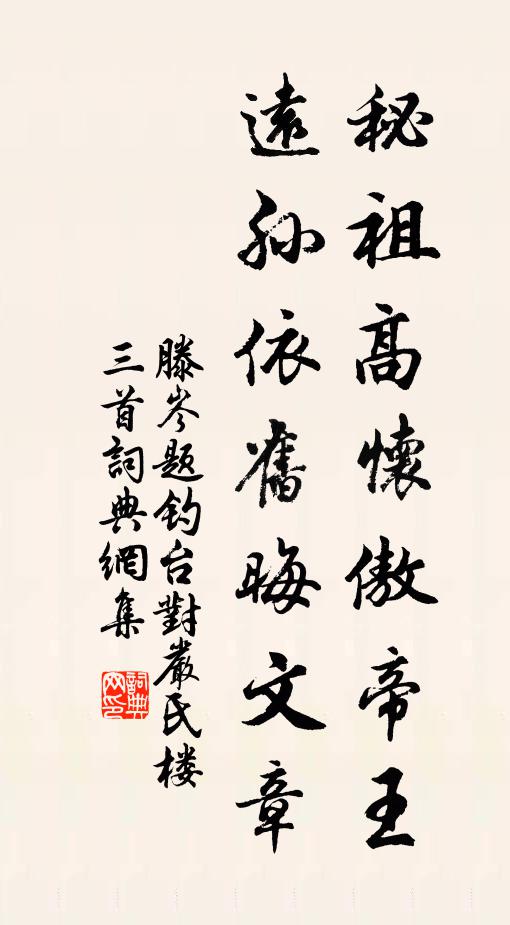 秘祖高懷傲帝王
遠孫依舊晦文章
滕岑題釣台對嚴氏楼
三首詞典網集
詞典网印